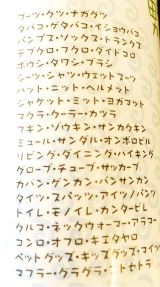 ブーツ・クツ・ナガグツ
タバコ・ゲタバコ・イショウバコ
パンプス・ソックス・トランクス
テブクロ・フクロ・ダイドコロ
ボウシ・タワシ・ブラシ
シーツ・シャツ・ウェットスーツ
ハット・ニット・ヘルメット
ジャケット・ミット・ヨガマット
マクラ・クーラ・カツラ
フキン・ゾウキン・サンカクキン
ミュール・サンダル・オンボロビル
リビング・ダイニング・ハイキング
グローブ・チューブ・サッカーブ
カバン・ゲンカン・バンサンカン
タイツ・スパッツ・アイツノパンツ
トイレ・モノイレ・カンタービレ
クルマ・ネックウォーマー・アラマー
コンロ・オフロ・キエタヤロ
ペットグッズ・キッズグッズ・コイツ
マフラー・グラグラ・ニトセトラ